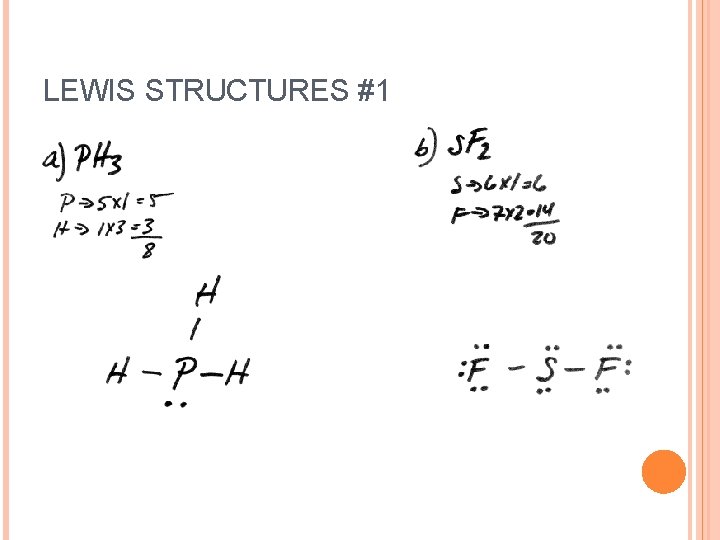 LEWIS STRUCTURES #1
a) PH3
P → 5x1 = 5
H → 1x3 = 3
8
H
H – P – H
b) SF2
S → 6x1 = 6
F → 7x2 = 14
20
:F – S – F: